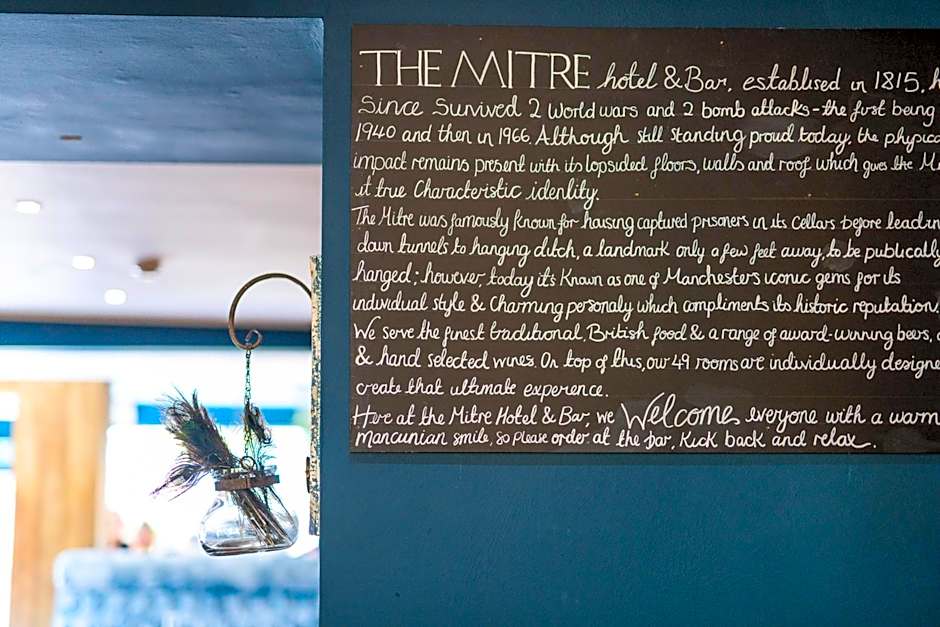 THE MITRE hotel & Bar, establised in 1815, h
Since Survived 2 World wars and 2 bomb attacks - the first being
1940 and then in 1966. Although still standing proud today, the physica
impact remains present with its lopsided floors, walls and roof which gives the M
it true Characteristic identity.
The Mitre was famously known for housing captured prisoners in its cellars before leadin
down tunnels to hanging ditch, a landmark only a few feet away, to be publically
hanged; however, today it's known as one of Manchester's iconic gems for its
individual style & Charming personaly which compliments its historic reputation.
We serve the finest traditional, British food & a range of award-winning beers,
& hand selected wines. On top of this, our 49 rooms are individually designe
create that ultimate experence.
Here at the Mitre Hotel & Bar, we Welcome everyone with a warm
mancunian smile, so please order at the bar, Kick back and relax.